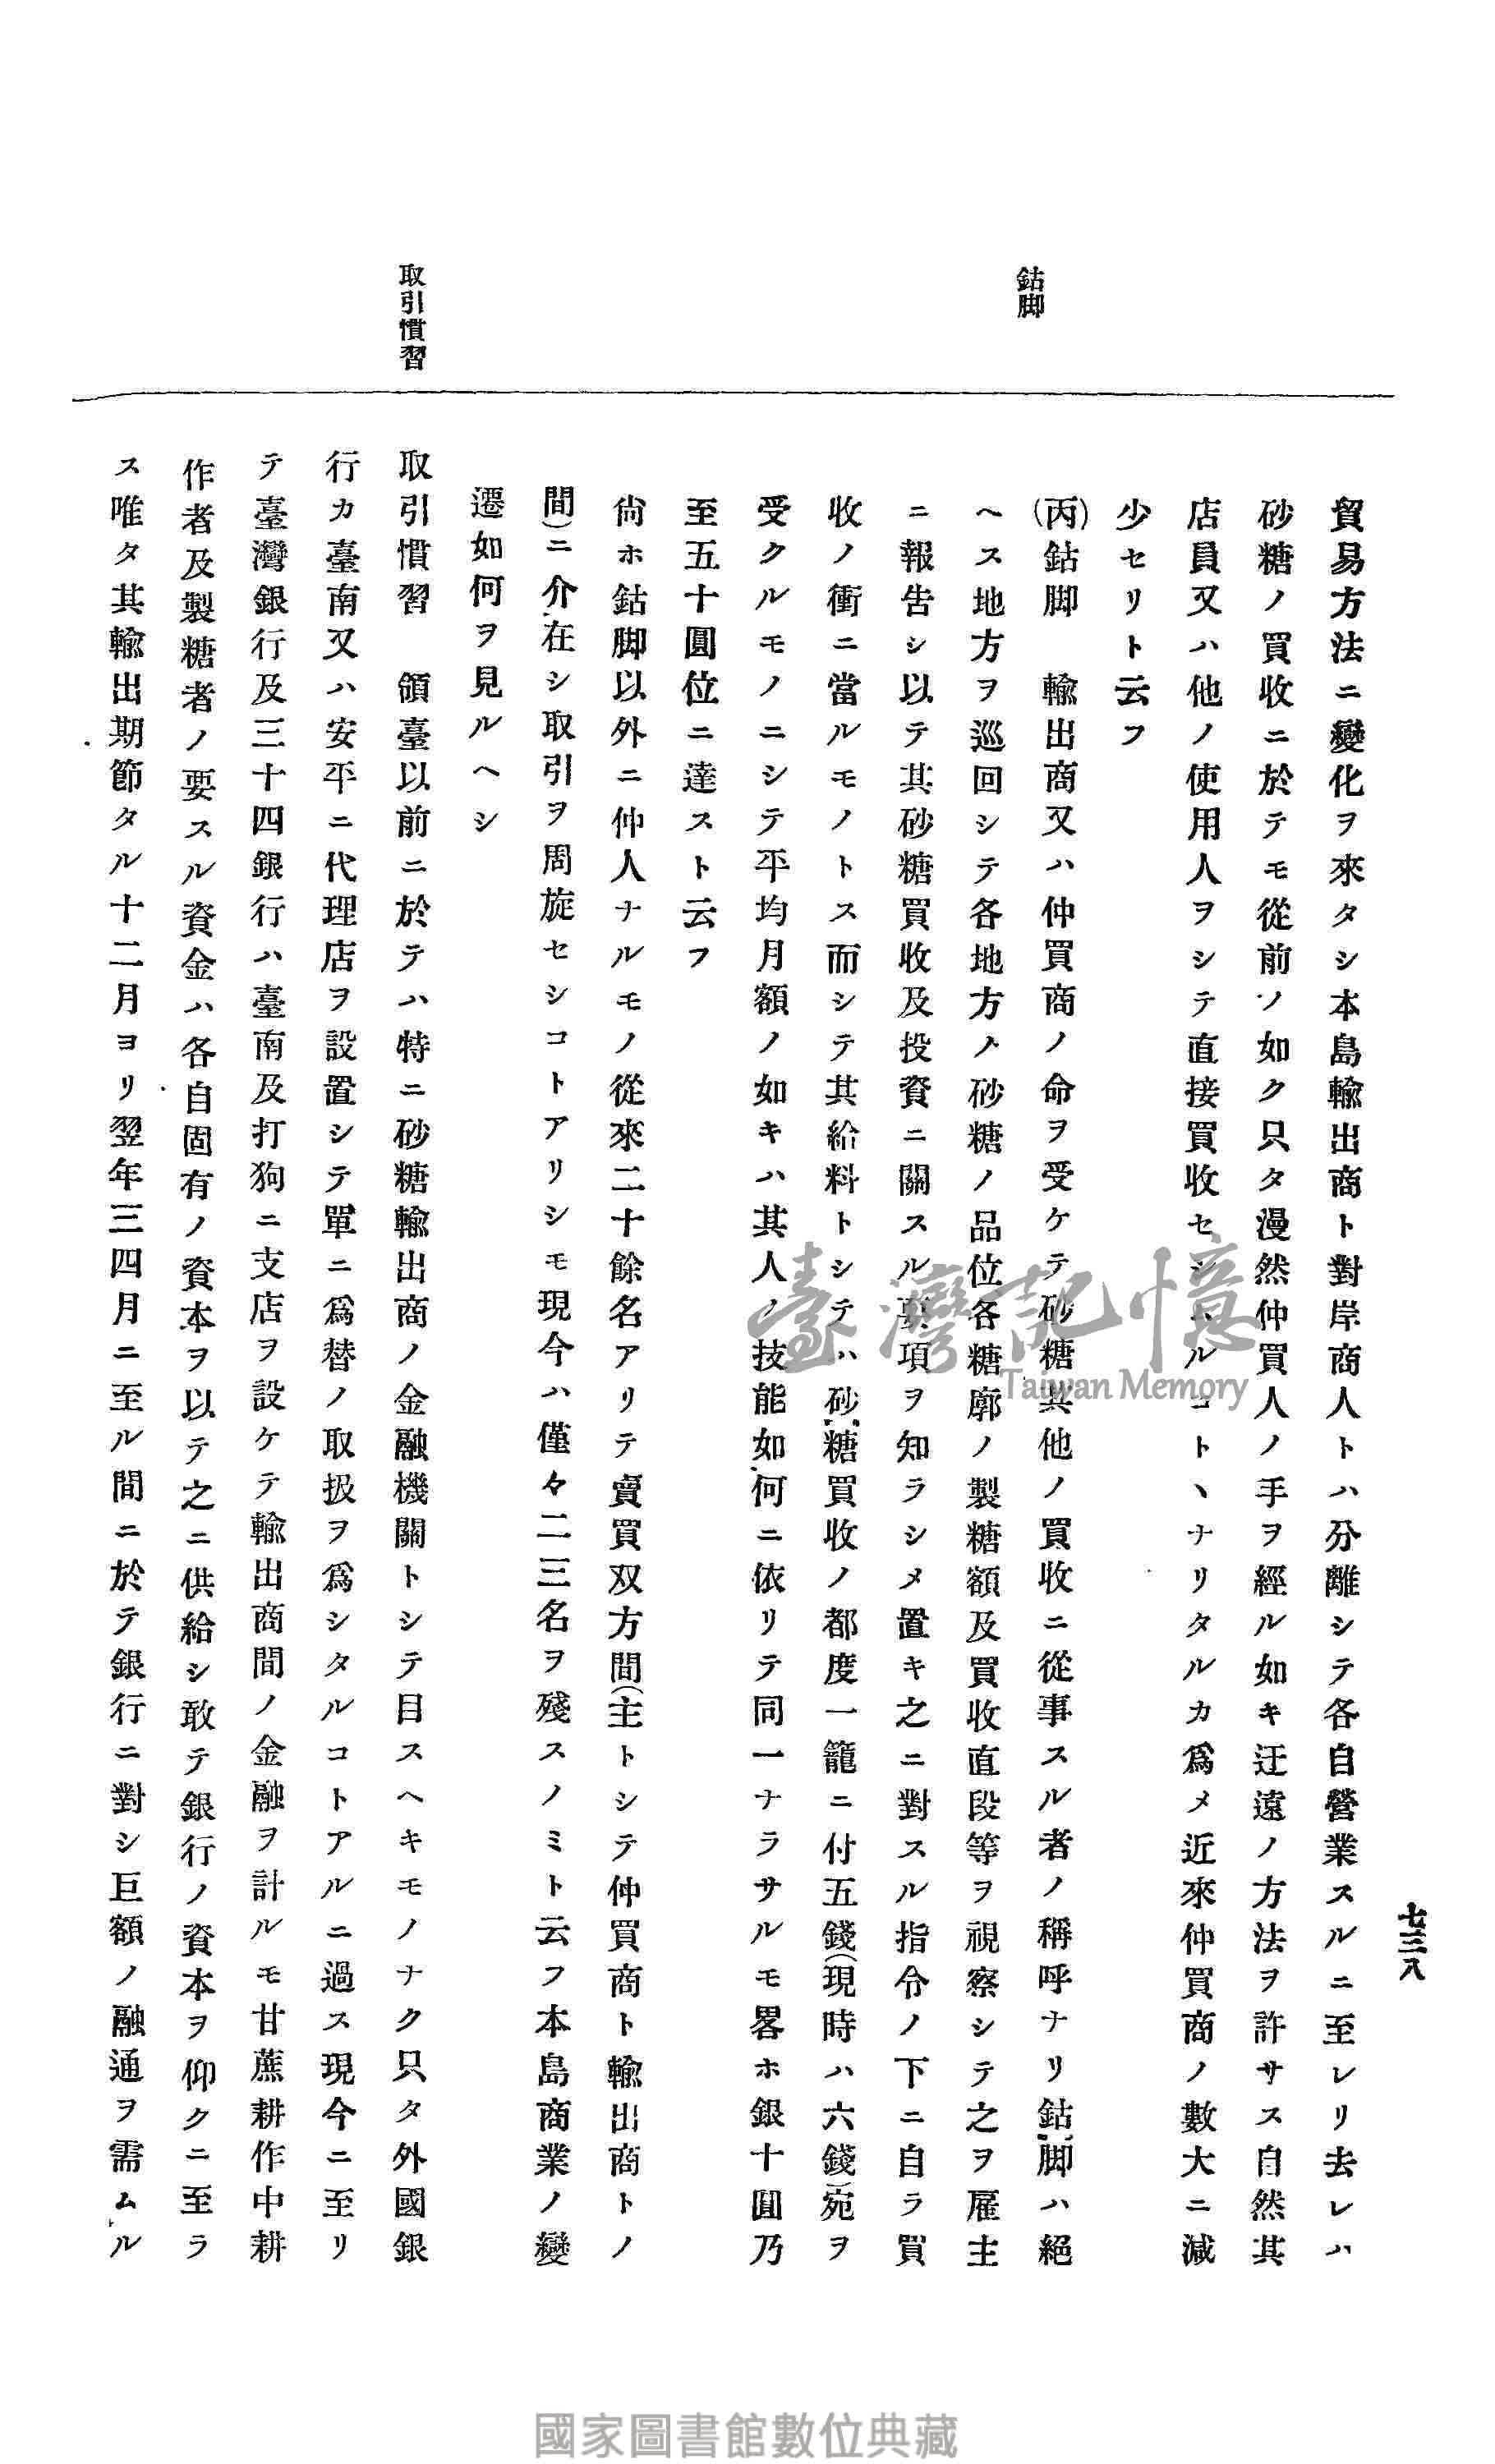 七三八
鈷脚
取引慣習
貿易方法ニ變化ヲ來タシ本島輸出商ト對岸商人トハ分離シテ各自營業スルニ至レリ去レハ
砂糖ノ買收ニ於テモ從前ノ如ク只タ漫然仲買人ノ手ヲ經ル如キ迂遠ノ方法ヲ許サス自然其
店員又ハ他ノ使用人ヲシテ直接買收セシムルコトヽナリタルカ爲メ近來仲買商ノ數大ニ減
少セリト云フ
(丙)鈷脚　輸出商又ハ仲買商ノ命ヲ受ケテ砂糖其他ノ買收ニ從事スル者ノ稱呼ナリ鈷脚ハ絕
ヘス地方ヲ巡回シテ各地方ノ砂糖ノ品位各糖廍ノ製糖額及買收直段等ヲ視察シテ之ヲ雇主
ニ報告シ以テ其砂糖買收及投資ニ關スル要項ヲ知ラシメ置キ之ニ對スル指令ノ下ニ自ラ買
收ノ衝ニ當ルモノトス而シテ其給料トシテハ砂糖買收ノ都度一籠ニ付五錢(現時ハ六錢)宛ヲ
受クルモノニシテ平均月額ノ如キハ其人ノ技能如何ニ依リテ同一ナラサルモ畧ホ銀十圓乃
至五十圓位ニ達スト云フ
尙ホ鈷脚以外ニ仲人ナルモノ從來二十餘名アリテ賣買双方間(主トシテ仲買商ト輸出商トノ
間)ニ介在シ取引ヲ周旋セシコトアリシモ現今ハ僅々二三名ヲ殘スノミト云フ本島商業ノ變
遷如何ヲ見ルヘシ
取引慣習　領臺以前ニ於テハ特ニ砂糖輸出商ノ金融機關トシテ目スヘキモノナク只タ外國銀
行カ臺南又ハ安平ニ代理店ヲ設置シテ單ニ爲替ノ取扱ヲ爲シタルコトアルニ過ス現今ニ至リ
テ臺灣銀行及三十四銀行ハ臺南及打狗ニ支店ヲ設ケテ輸出商間ノ金融ヲ計ルモ甘蔗耕作中耕
作者及製糖者ノ要スル資金ハ各自固有ノ資本ヲ以テ之ニ供給シ敢テ銀行ノ資本ヲ仰クニ至ラ
ス唯タ其輸出期節タル十二月ヨリ翌年三四月ニ至ル間ニ於テ銀行ニ對シ巨額ノ融通ヲ需ムル
臺灣記憶
Taiwan Memory
國家圖書館數位典藏